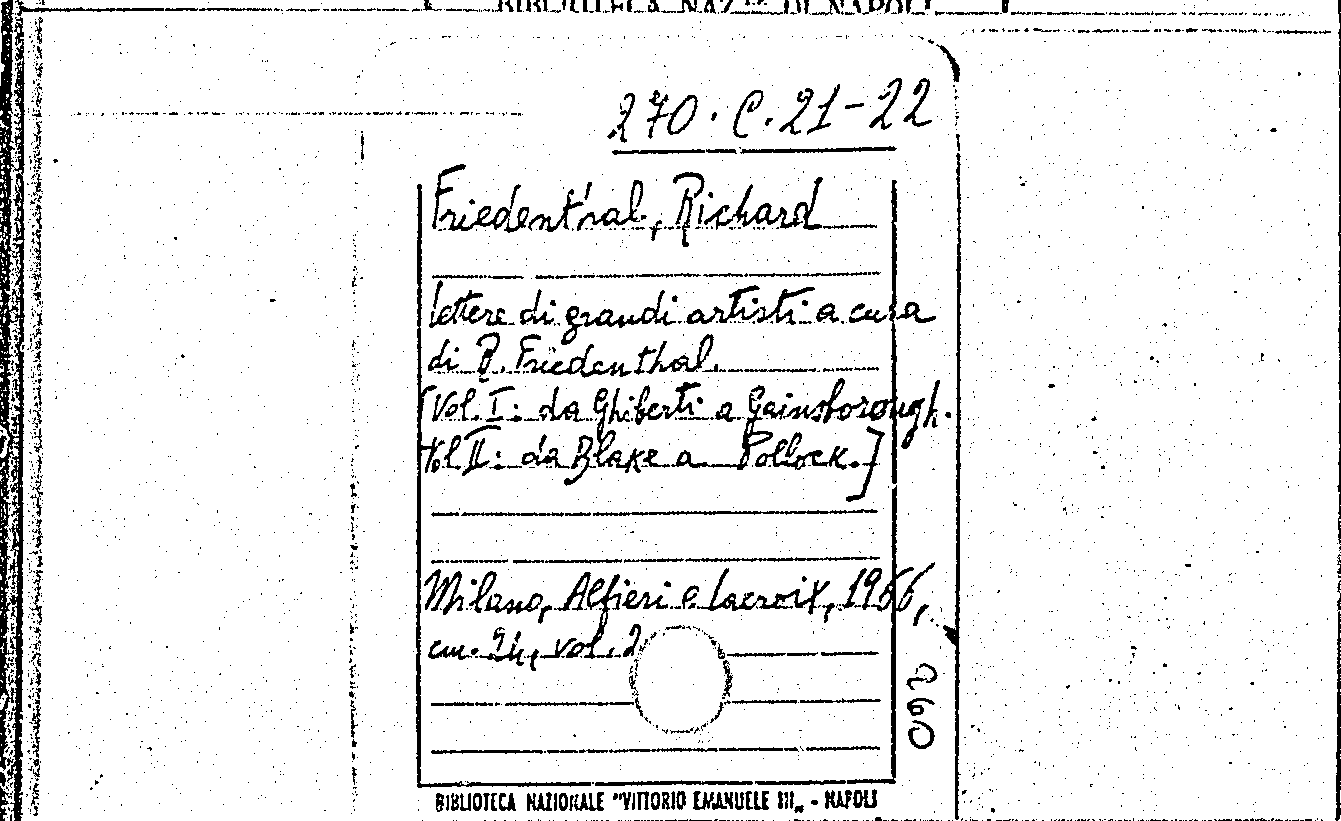 BIBLIOTECA NAZ.LE DI NAPOLI
270.C.21-22
Friedenthal, Richard
lettere di grandi artisti a cura
di R. Friedenthal.
[Vol. I: da Ghiberti a Gainsborough.
Vol II: da Blake a Pollock.]
Milano, Alfieri e Lacroix, 1966,
cm. 24, vol. 2
260
BIBLIOTECA NAZIONALE "VITTORIO EMANUELE III„ - NAPOLI